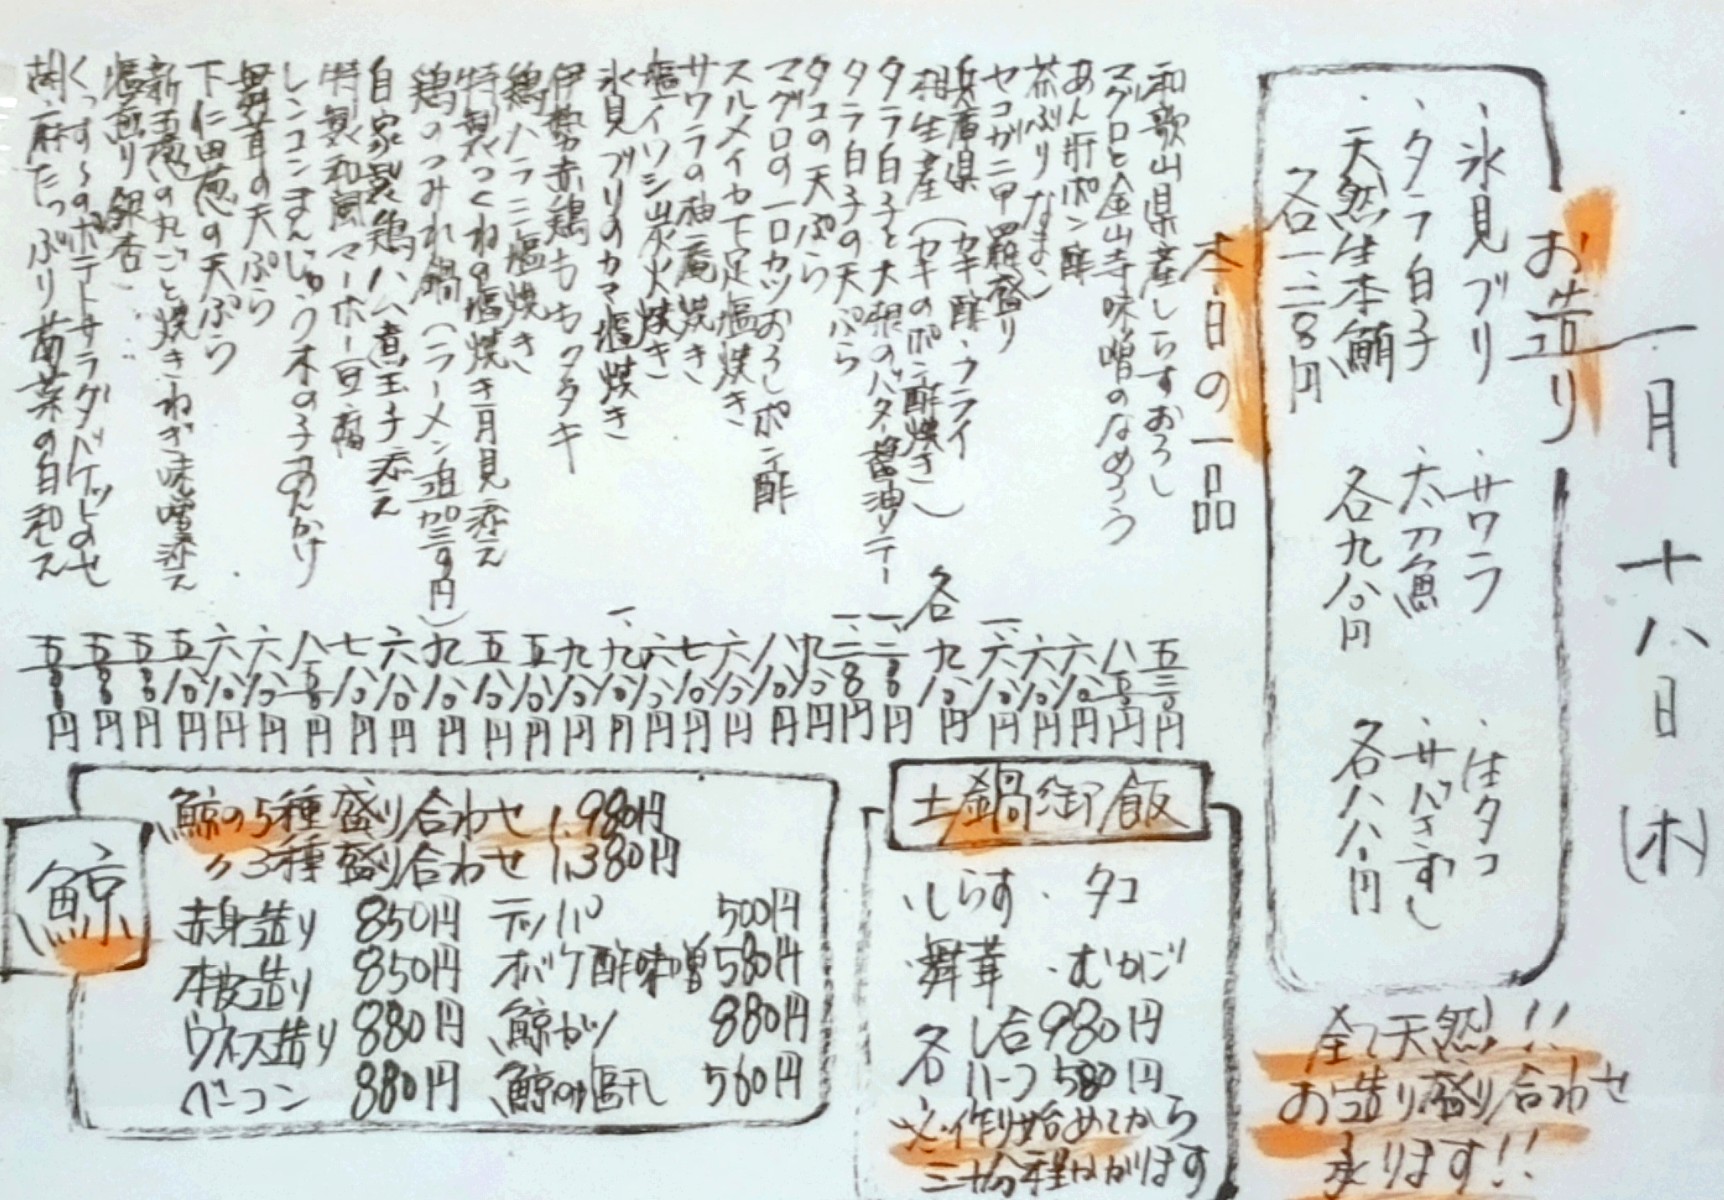 一月十八日(木)
お造り
・氷見ブリ
・タラ白子
・天然生本鮪
各一、二三〇円
・サワラ
・太刀魚
各九八〇円
・生タコ
・サバきずし
各八八〇円
全て天然!!
お造り盛り合わせ
承ります!!
本日の一品
和歌山県産しらすおろし 五三〇円
マグロと金山寺味噌のなめろう 八五〇円
あん肝ポン酢 六八〇円
茶ぶりなまこ 六八〇円
セコガニ甲羅盛り 一、六八〇円
兵庫県 カキ酢・フライ
相生産(カキのポン酢焼き) 各九八〇円
タラ白子と大根のバター醤油ソテー 一、二三〇円
タラ白子の天ぷら 一、二三〇円
タコの天ぷら 九八〇円
マグロの一口カツおろしポン酢 八八〇円
スルメイカ下足塩焼き 六八〇円
サワラの柚庵焼き 七八〇円
塩イワシ炭火焼き 六八〇円
氷見ブリのカマ塩焼き 一、九八〇円
伊勢赤鶏ももタタキ 九八〇円
鶏ハラミ塩焼き 五八〇円
特製つくねの塩焼き月見添え 五八〇円
鶏のつみれ鍋(ラーメン追加三百円) 九八〇円
自家製鶏ハム煮玉子添え 六八〇円
特製和風マーボー豆腐 七八〇円
レンコンまんじゅう木の子あんかけ 八五〇円
舞茸の天ぷら 六八〇円
下仁田葱の天ぷら 六八〇円
新玉葱の丸ごと焼きねぎ味噌添え 五八〇円
塩煎り銀杏 五五〇円
くっす〜のポテトサラダバケットのせ 五五〇円
胡麻たっぷり菊菜の白和え 五五〇円
土鍋御飯
・しらす ・タコ
・舞茸 ・むかご
各 1合980円
各 ハーフ580円
※作り始めてから
三十分程かかります
鯨
鯨の5種盛り合わせ 1,980円
〃3種盛り合わせ 1,380円
赤身造り 850円 テッパ 500円
本皮造り 850円 オバケ酢味噌 580円
ウネス造り 880円 鯨カツ 880円
ベーコン 880円 鯨の塩干し 560円